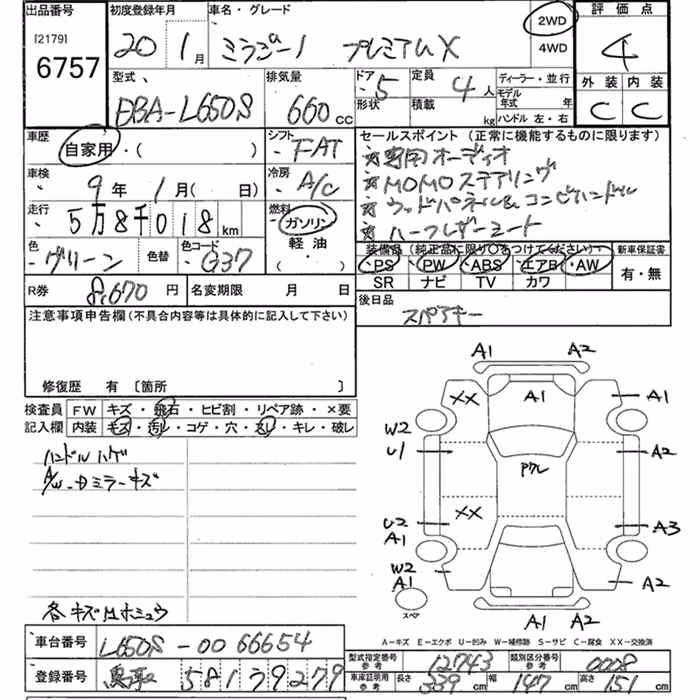 出品番号 初度登録年月 車名・グレード 評価点
[2179] 6757 20 1月 ミラジーノ プレミアムX 2WD 4WD 4
型式 排気量 ドア 定員 ディーラー・並行 外装 内装
DBA-L650S 660 cc 5 4人 モデル年式 年 C C
形状 積載 kg ハンドル 左・右
車歴 シフト セールスポイント (正常に機能するものに限ります)
自家用・( ) FAT ☆専用オーディオ
車検 冷房 ☆MOMOステアリング
9年 1月( 日) A/C ☆ウッドパネル&コンビハンドル
走行 燃料 ☆ハーフレザーシート
5万8千018km ガソリン 軽油 ・( )
色 色替 色コード 装備品 (純正品に限り○をつけてください) 新車保証書
グリーン G37 ・PS ・PW ・ABS ・エアB ・AW 有・無
SR ナビ TV カワ
R券 8,670円 名変期限 月 日 後日品
スペアキー
注意事項申告欄(不具合内容等は具体的に記入して下さい)
修復歴 有 〔箇所 〕
検査員 FW キズ・飛石・ヒビ割・リペア跡・×要
記入欄 内装 キズ・汚レ・コゲ・穴・スレ・キレ・破レ
ハンドルハゲ
A/W・Dミラーキズ
各キズ
A1 A2
XX A1 A1
W2
U1 A2
Pクレ
XX
U2 A3
A1
W2 A2
A1
スペア A1 A2
A-キズ E-エクボ U-凹み W-補修跡 S-サビ C-腐食 XX-交換済
車台番号 L650S-0066654
型式指定番号 参考 12743 類別区分番号 参考 0008
登録番号 581 39279
車庫証明用 参考 長さ 339cm 幅 147cm 高さ 151cm